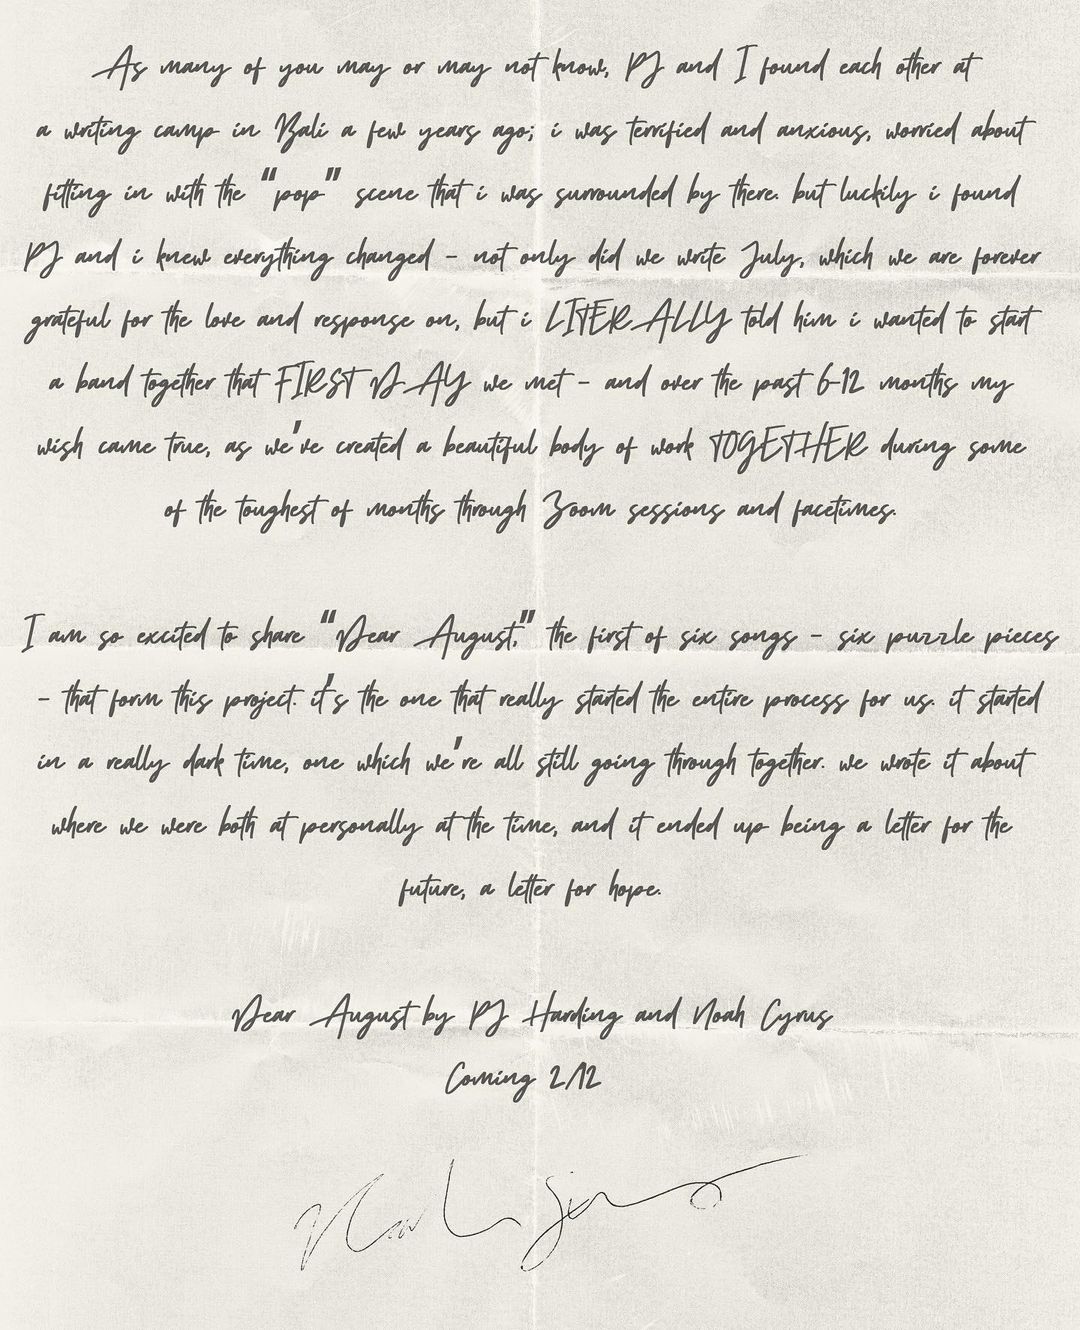 As many of you may or may not know, PJ and I found each other at
a writing camp in Bali a few years ago; i was terrified and anxious, worried about
fitting in with the "pop" scene that i was surrounded by there. but luckily i found
PJ and i knew everything changed - not only did we write July, which we are forever
grateful for the love and response on, but i LITERALLY told him i wanted to start
a band together that FIRST DAY we met - and over the past 6-12 months my
wish came true, as we've created a beautiful body of work TOGETHER during some
of the toughest of months through Zoom sessions and facetimes.
I am so excited to share "Dear August," the first of six songs - six puzzle pieces
- that form this project. it's the one that really started the entire process for us. it started
in a really dark time, one which we're all still going through together. we wrote it about
where we were both at personally at the time, and it ended up being a letter for the
future, a letter for hope.
Dear August by PJ Harding and Noah Cyrus
Coming 2/12
Noah Cyrus